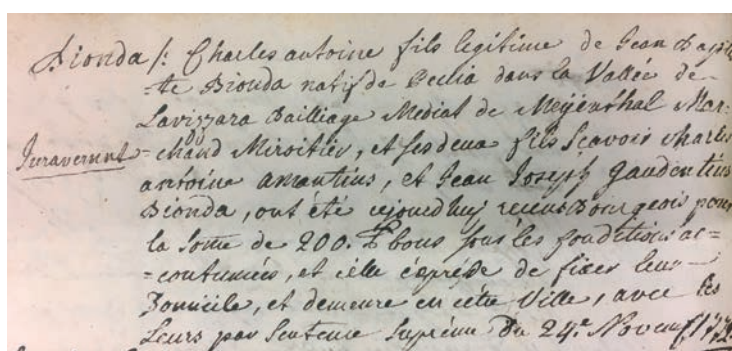 Bionda /: Charles antoine fils legitime de Jean Baptis
=te Bionda natif de Peccia dans la Vallée de
Lavizzara Bailliage Mediat de Meÿenthal Mar:
Juraverunt =chand Miroitier, et ses deux fils sçavoir Charles
antoine amantius, et Jean Joseph gaudentius
Bionda, ont été cejourdhuy recus Bourgeois pour
la some de 200. bons sous les conditions ac=
=coutumées, et celle expresse de fixer leur
Domicile, et demeure en cette Ville, avec les
Leurs par Sentence Supréme Du 24.e Novemb